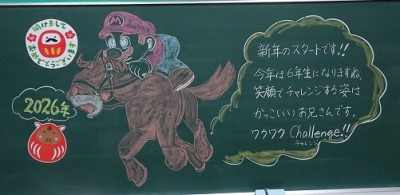 明けまして
おめでとうございます
2026年
新年のスタートです!!
今年は6年生になりますね。
笑顔でチャレンジする姿は
かっこいいお兄さんです。
ワクワクChallenge!!
チャレンジ